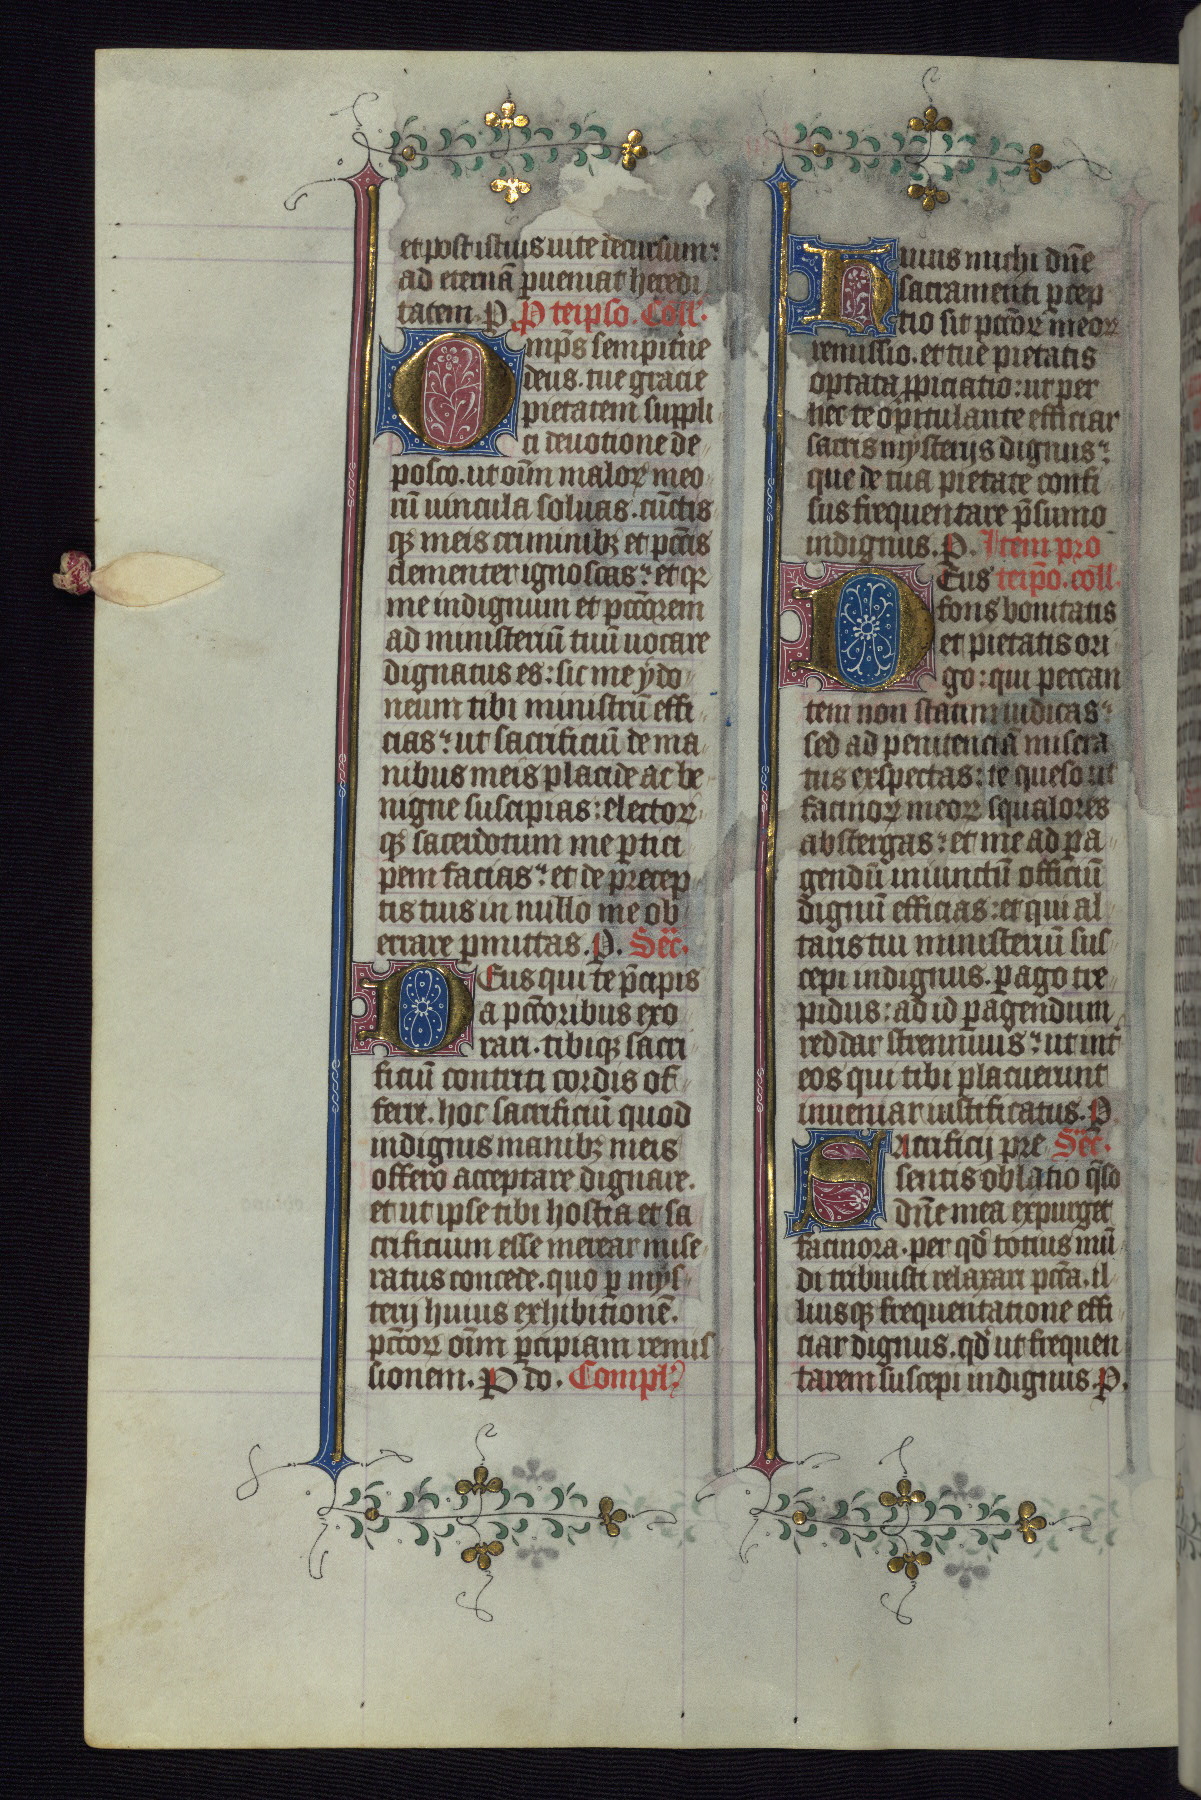 et post istius uite decursum:
ad eternā ꝑueniat heredi
tatem. P. P teipso. Coll'.
Omp̄s sempitn̄e
deus. tue gracie
pietatem suppli
ci deuotione de
posco. ut oīm maloꝝ meo
rū uincula soluas. cūctis
qꝫ meis criminibꝫ et pcc̄is
clementer ignoscas: et qꝛ
me indignum et pcc̄orem
ad ministeriū tuū uocare
dignatus es: sic me ydo
neum tibi ministrū effi
cias: ut sacrificiū de ma
nibus meis placide ac be
nigne suscipias: electoꝝ
qꝫ sacerdotum me ꝑtici
pem facias: et de precep
tis tuis in nullo me ob
errare ꝑmittas. P. Sec̄.
Deus qui te p̄cipis
a pcc̄oribus exo
rari. tibiqꝫ sacri
ficiū contriti cordis of
ferre. hoc sacrificiū quod
indignis manibꝫ meis
offero acceptare dignare.
et ut ipse tibi hostia et sa
crificium esse merear mise
ratus concede. quo ꝑ mys
terij huius exhibitionē.
pcc̄oꝝ oīm ꝑcipiam remis
sionem. P do. Compl'.
Huius michi dn̄e
sacramenti ꝑcep
tio sit pcc̄oꝝ meoꝝ
remissio. et tue pietatis
optata ꝓpiciatio: ut per
hec te opitulante efficiar
sacris mysterijs dignus:
que de tua pietate confi
sus frequentare p̄sumo
indignus. P. Item pro
Deus teip̄o. coll'.
fons bonitatis
et pietatis ori
go: qui peccan
tem non statim iudicas:
sed ad penitenciā misera
tus exspectas: te queso ut
facinoꝝ meoꝝ squalores
abstergas: et me ad ꝑa
gendū iniunctū officiū
dignū efficias: et qui al
taris tui ministeriū sus
cepi indignus. ꝑago tre
pidus: ad id ꝑagendum
reddar strennuus: ut int̄
eos qui tibi placuerunt
inueniar iustificatus. P.
Sacrificij pre Sec̄.
sentis oblatio q̄so
dn̄e mea expurget
facinora. per qd̄ totius mū
di tribuisti relaxari pcc̄a. il
liusqꝫ frequentatione effi
ciar dignus. qd̄ ut frequen
tarem suscepi indignus. P.